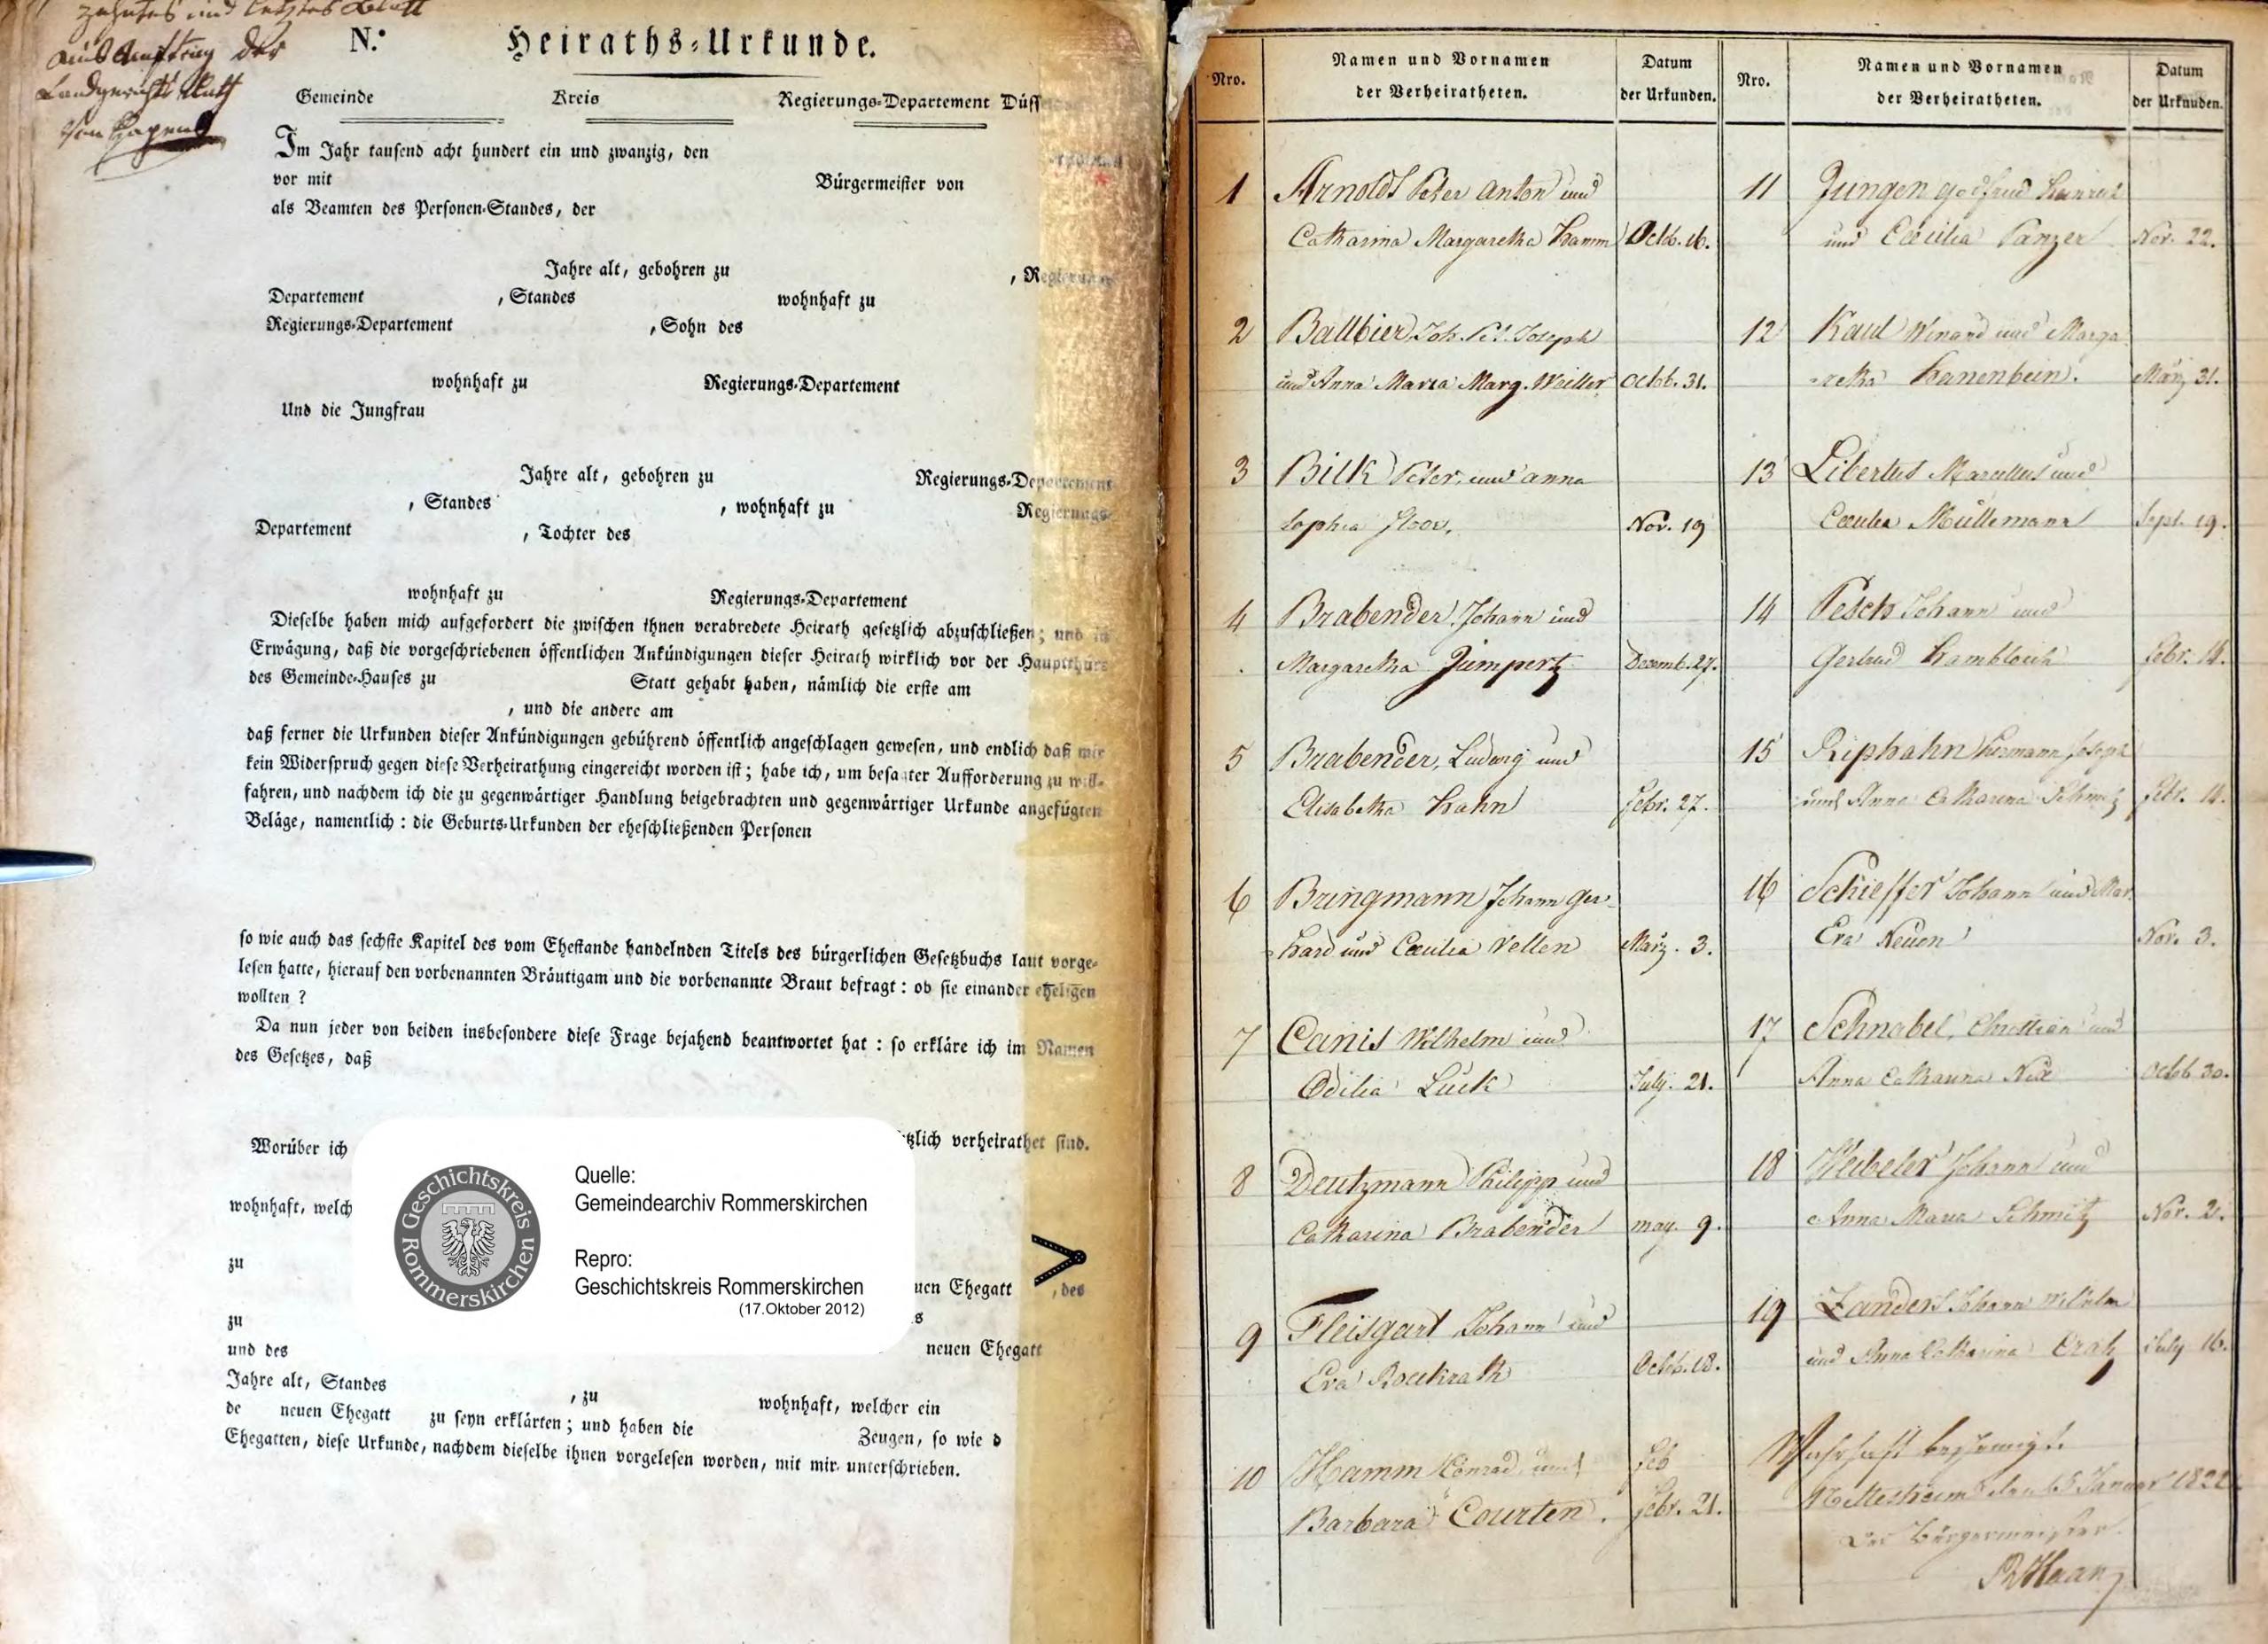 zehntes und letztes Blatt
aus Auftrag des
Landgerichts Rath
N.º Heiraths-Urkunde.
Gemeinde Kreis Regierungs-Departement Düss
Im Jahr tausend acht hundert ein und zwanzig, den
vor mit Bürgermeister von
als Beamten des Personen-Standes, der
Jahre alt, gebohren zu , Regierungs
Departement , Standes wohnhaft zu
Regierungs-Departement , Sohn des
wohnhaft zu Regierungs-Departement
Und die Jungfrau
Jahre alt, gebohren zu Regierungs-Departement
, Standes , wohnhaft zu Regierungs-
Departement , Tochter des
wohnhaft zu Regierungs-Departement
Dieselbe haben mich aufgefordert die zwischen ihnen verabredete Heirath gesetzlich abzuschließen; und in
Erwägung, daß die vorgeschriebenen öffentlichen Ankündigungen dieser Heirath wirklich vor der Hauptthüre
des Gemeinde-Hauses zu Statt gehabt haben, nämlich die erste am
, und die andere am
daß ferner die Urkunden dieser Ankündigungen gebührend öffentlich angeschlagen gewesen, und endlich daß mir
kein Widerspruch gegen diese Verheirathung eingereicht worden ist; habe ich, um besagter Aufforderung zu will-
fahren, und nachdem ich die zu gegenwärtiger Handlung beigebrachten und gegenwärtiger Urkunde angefügten
Beläge, namentlich: die Geburts-Urkunden der eheschließenden Personen
so wie auch das sechste Kapitel des vom Ehestande handelnden Titels des bürgerlichen Gesetzbuchs laut vorge-
lesen hatte, hierauf den vorbenannten Bräutigam und die vorbenannte Braut befragt: ob sie einander eheligen
wollten ?
Da nun jeder von beiden insbesondere diese Frage bejahend beantwortet hat : so erkläre ich im Namen
des Gesetzes, daß
tzlich verheirathet sind.
Worüber ich
wohnhaft, welch
zu
uen Ehegatt , des
zu s
und des neuen Ehegatt
Jahre alt, Standes , zu wohnhaft, welcher ein
de neuen Ehegatt zu seyn erklärten; und haben die Zeugen, so wie d
Ehegatten, diese Urkunde, nachdem dieselbe ihnen vorgelesen worden, mit mir unterschrieben.
Geschichtskreis Rommerskirchen
Quelle:
Gemeindearchiv Rommerskirchen
Repro:
Geschichtskreis Rommerskirchen
(17.Oktober 2012)
>
Nro. Namen und Vornamen der Verheiratheten. Datum der Urkunden.
1 Arnolds Peter Anton und
Catharina Margaretha Hamm Octob. 16.
2 Ballbier Joh. Pet. Joseph
und Anna Maria Marg. Weiller Octob. 31.
3 Bilk Peter und Anna
Sophia Floov. Nov. 19
4 Brabender Johann und
Margaretha Jümpertz Decemb. 27.
5 Brabender, Ludwig und
Elisabetha Hahn Febr. 27.
6 Bringmann Johann Ger-
hard und Cæcilia Vellen März. 3.
7 Canis Wilhelm und
Odilia Lück July. 21.
8 Deutzmann Philipp und
Catharina Brabender may. 9.
9 Fleisgart Johann und
Eva Rockrath Octob. 18.
10 Hamm Conrad und Feb
Barbara Courten. Febr. 21.
Nro. Namen und Vornamen der Verheiratheten. Datum der Urkunden.
11 Jungen Godfried Heinrich
und Cæcilia Panzer Nov. 22.
12 Kaul Winand und Marga-
retha Hanenbein. März 31.
13 Libertus Marcellus und
Cæcilia Müllemann Sept. 19.
14 Pesch Johann und
Gertrud Hambloch Febr. 14.
15 Riphahn Hermann Joseph
und Anna Catharina Schmitz Febr. 14.
16 Schieffer Johann und Mar.
Eva Neuen Nov. 3.
17 Schnabel, Christian und
Anna Catharina Octob 30.
18 Weibeler Johann und
Anna Maria Schmitz Nov. 21.
19 Zanders Johann Wilhelm
und Anna Catharina Cratz July 16.
Wahrhaft bescheinigt.
Nettesheim den 5 Januar 1822
Der Bürgermeister